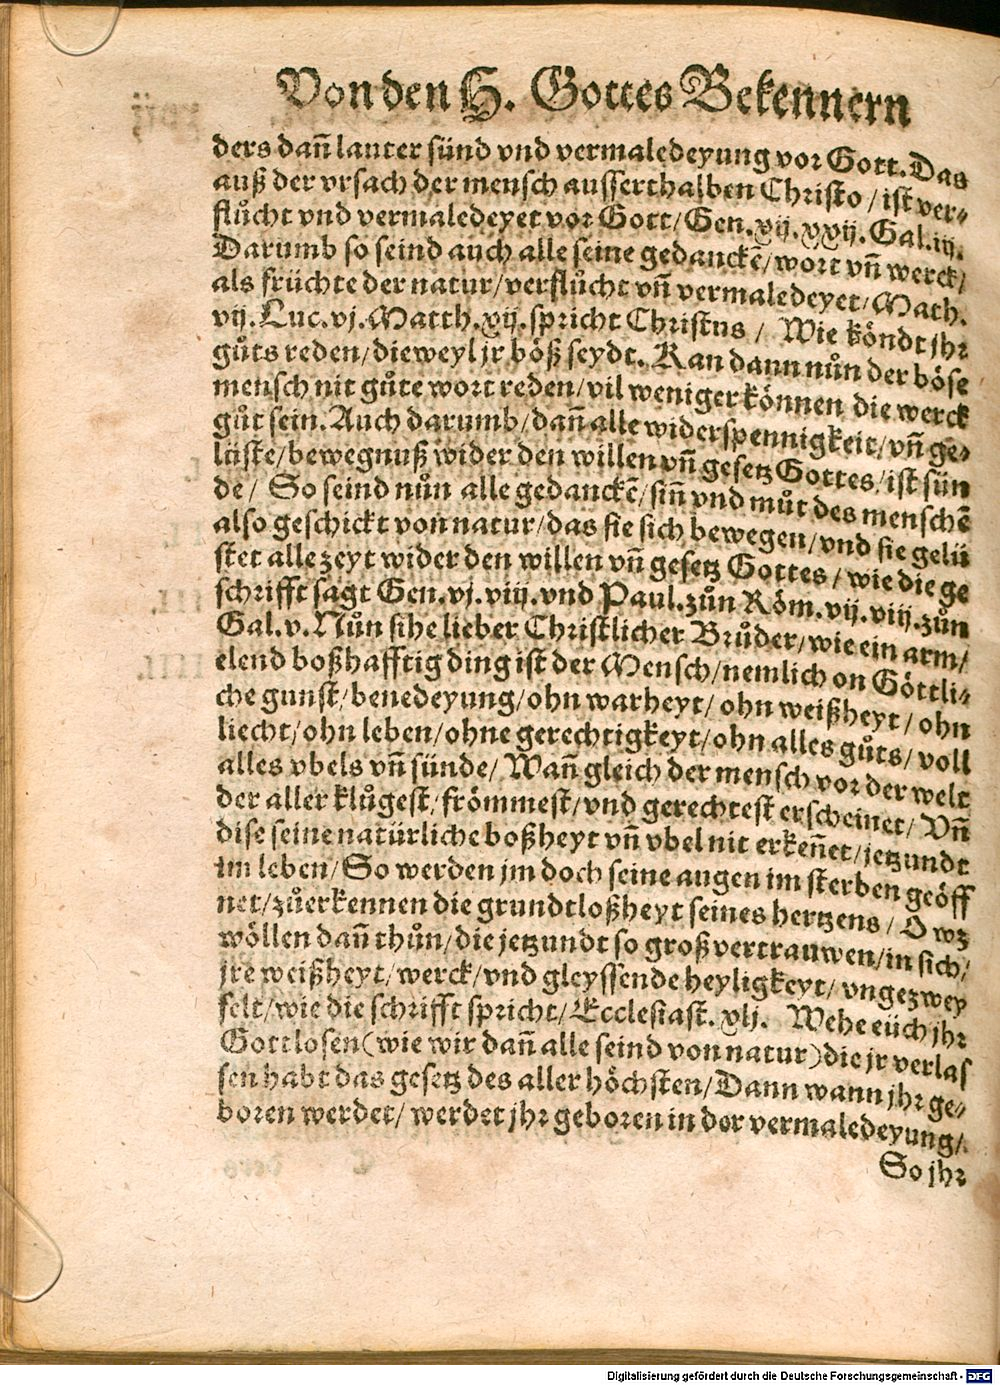 Von den H. Gottes Bekennern
ders dañ lauter sünd vnd vermaledeyung vor Gott. Das
auß der vrsach der mensch ausserthalben Christo / ist ver-
flůcht vnd vermaledeyet vor Gott / Gen. xij. xxij. Gal. iij.
Darumb so seind auch alle seine gedanckẽ / wort vñ werck /
als früchte der natur / verflůcht vñ vermaledeyet / Math.
vij. Luc. vj. Matth. xij. spricht Christus / Wie köndt jhr
gůts reden / dieweyl jr böß seydt. Kan dann nůn der böse
mensch nit gůte wort reden / vil weniger können die werck
gůt sein. Auch darumb / dañ alle widerspennigkeit / vñ ge-
lüste / bewegnuß wider den willen vñ gesetz Gottes / ist sün
de / So seind nůn alle gedanckẽ / siñ vnd můt des menschẽ
also geschickt von natur / das sie sich bewegen / vnd sie gelü
stet alle zeyt wider den willen vñ gesetz Gottes / wie die ge
schrifft sagt Gen. vj. viij. vnd Paul. zůn Röm. vij. viij. zůn
Gal. v. Nůn sihe lieber Christlicher Brůder / wie ein arm /
elend boßhafftig ding ist der Mensch / nemlich on Göttli-
che gunst / benedeyung / ohn warheyt / ohn weißheyt / ohn
liecht / ohn leben / ohne gerechtigkeyt / ohn alles gůts / voll
alles vbels vñ sünde / Wañ gleich der mensch vor der welt
der aller klůgest / frömmest / vnd gerechtest erscheinet / Vñ
dise seine natürliche boßheyt vñ vbel nit erkeñet / jetzundt
im leben / So werden jm doch seine augen im sterben geöff
net / zůerkennen die grundtloßheyt seines hertzens / O wz
wöllen dañ thůn / die jetzundt so groß vertrauwen / in sich /
jre weißheyt / werck / vnd gleyssende heyligkeyt / vngezwey
felt / wie die schrifft spricht / Ecclesiast. xlj. Wehe eüch jhr
Gottlosen (wie wir dañ alle seind von natur) die jr verlas
sen habt das gesetz des aller höchsten / Dann wann jhr ge-
boren werdet / werdet jhr geboren in der vermaledeyung /
So jhr
Digitalisierung gefördert durch die Deutsche Forschungsgemeinschaft - DFG